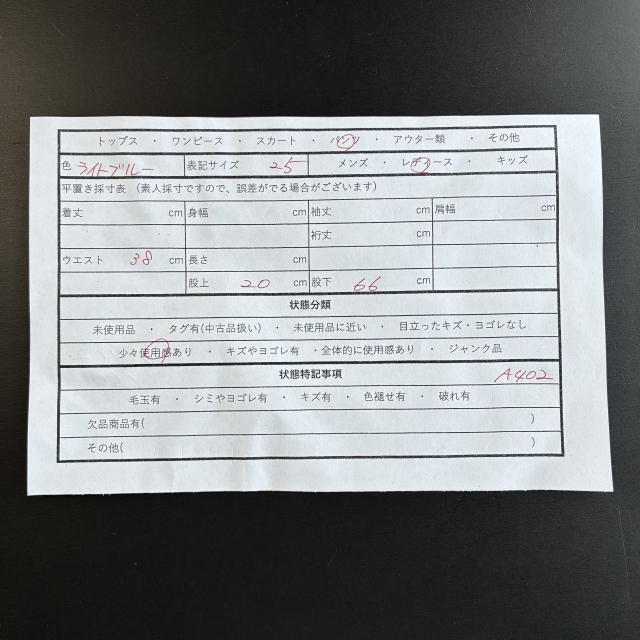 トップス ・ ワンピース ・ スカート ・ パンツ ・ アウター類 ・ その他
色 ライトブルー 表記サイズ 25 メンズ ・ レディース ・ キッズ
平置き採寸表 (素人採寸ですので、誤差がでる場合がございます)
着丈 cm 身幅 cm 袖丈 cm 肩幅 cm
裄丈 cm
ウエスト 38 cm 長さ cm
股上 20 cm 股下 66 cm
状態分類
未使用品 ・ タグ有(中古品扱い) ・ 未使用品に近い ・ 目立ったキズ・ヨゴレなし
少々使用感あり ・ キズやヨゴレ有 ・全体的に使用感あり ・ ジャンク品
状態特記事項 A402
毛玉有 ・ シミやヨゴレ有 ・ キズ有 ・ 色褪せ有 ・ 破れ有
欠品商品有( )
その他( )